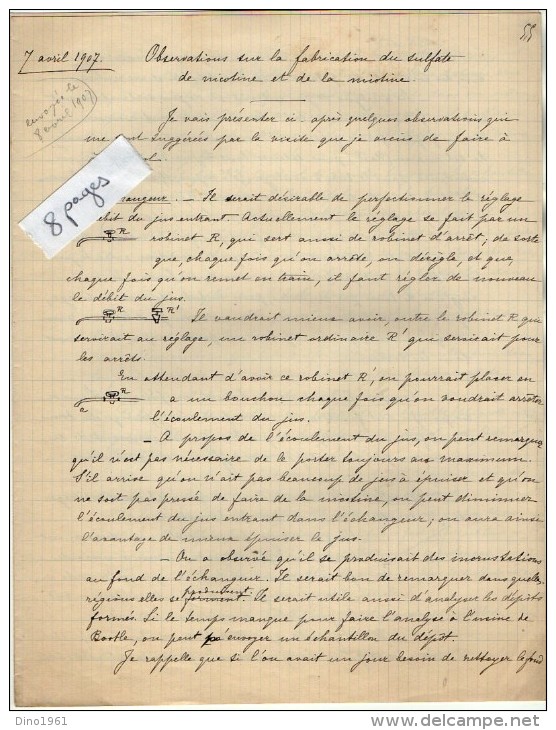 55
7 avril 1907.
Observations sur la fabrication du sulfate
de nicotine et de la nicotine.
envoyés le
8 avril 1907
Je vais présenter ci-après quelques observations qui
me sont suggérées par la visite que je viens de faire à
8 pages
angeur. - Il serait désirable de perfectionner le réglage
débit du jus entrant Actuellement le réglage se fait par un
R
robinet R, qui sert aussi de robinet d'arrêt; de sorte
que, chaque fois qu'on arrête, on dérègle, et que,
chaque fois qu'on remet en train, il faut régler de nouveau
le débit du jus.
R R' Il vaudrait mieux avoir, outre le robinet R qui
servirait au réglage, un robinet ordinaire R' qui servirait pour
les arrêts.
En attendant d'avoir ce robinet R', on pourrait placer en
R
a un bouchon chaque fois qu'on voudrait arrêter
a
l'écoulement du jus.
- A propos de l'écoulement du jus, on peut remarquer
qu'il n'est pas nécessaire de le porter toujours au maximum.
S'il arrive qu'on n'ait pas beaucoup de jus à épuiser et qu'on
ne soit pas pressé de faire de la nicotine, on peut diminuer
l'écoulement du jus entrant dans l'échangeur; on aura ainsi
l'avantage de mieux épuiser le jus.
- On a observé qu'il se produisait des incrustations
au fond de l'échangeur. Il serait bon de remarquer dans quelles
produisent
régions elles se forment. Il serait utile aussi d'analyser les dépôts
formés. Si le temps manque pour faire l'analyse à l'usine de
Bootle, on peut envoyer un échantillon du dépôt.
Je rappelle que si l'on avait un jour besoin de nettoyer le fond
Dino1961
delcampe.net